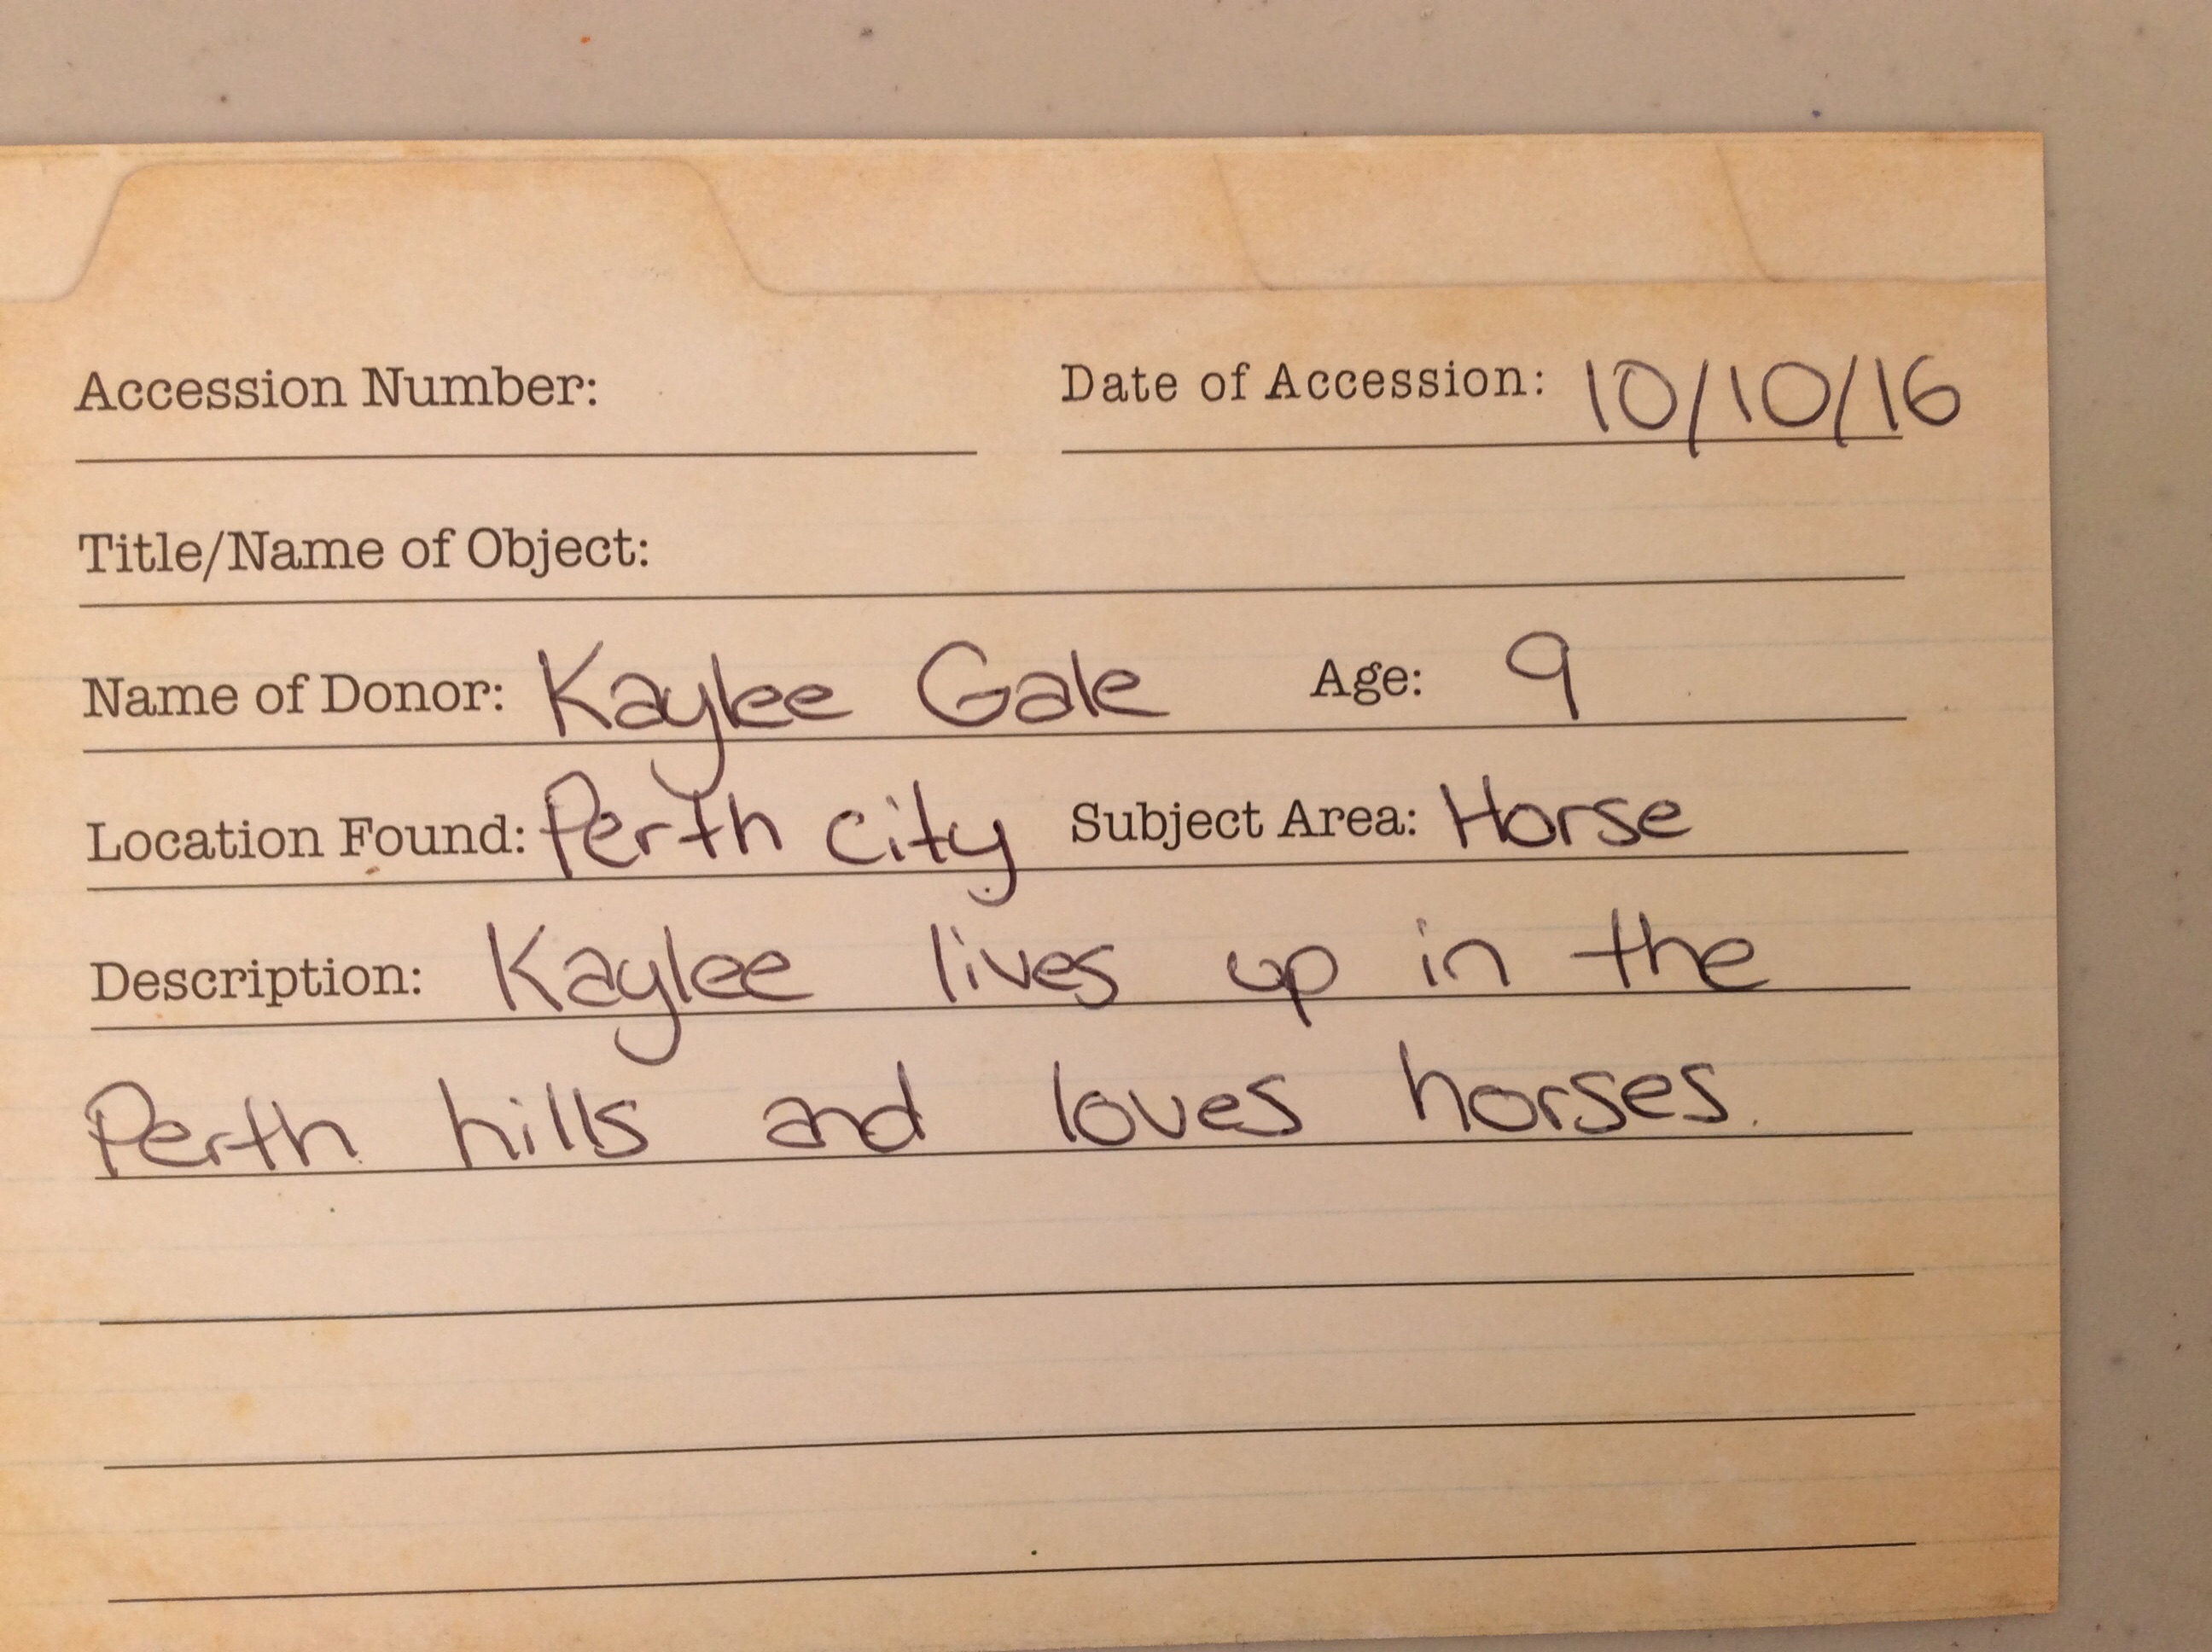 Accession Number: Date of Accession: 10/10/16
Title/Name of Object:
Name of Donor: Kaylee Gale Age: 9
Location Found: Perth city Subject Area: Horse
Description: Kaylee lives up in the
Perth hills and loves horses.